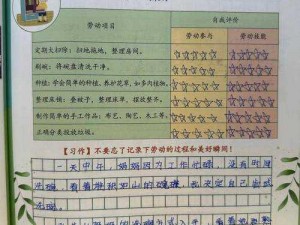 劳动项目
自我评价
劳动参与
劳动技能
定期大扫除：扫地拖地，整理房间。
刷碗：将碗盘清洗干净。
种植：学会简单的种植、养护花草，如多肉植物。
整理床铺：叠被子，整理床单，摆放整齐。
制作简单的手工作品：布艺、陶艺、木工等。
正确分类投放垃圾。
【习作】不要忘了记录下劳动的过程和美好瞬间！
一天中午，妈妈因为工作忙碌，没有时间
洗碗，看着堆积如山的碗碟，我决定自己尝试
洗碗。